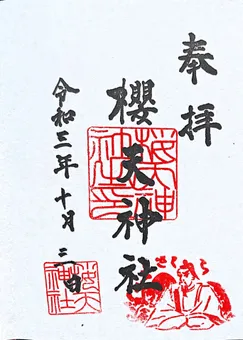 奉拝
櫻天神社
令和三年十月三日
櫻天神社印
さくら
櫻天神社